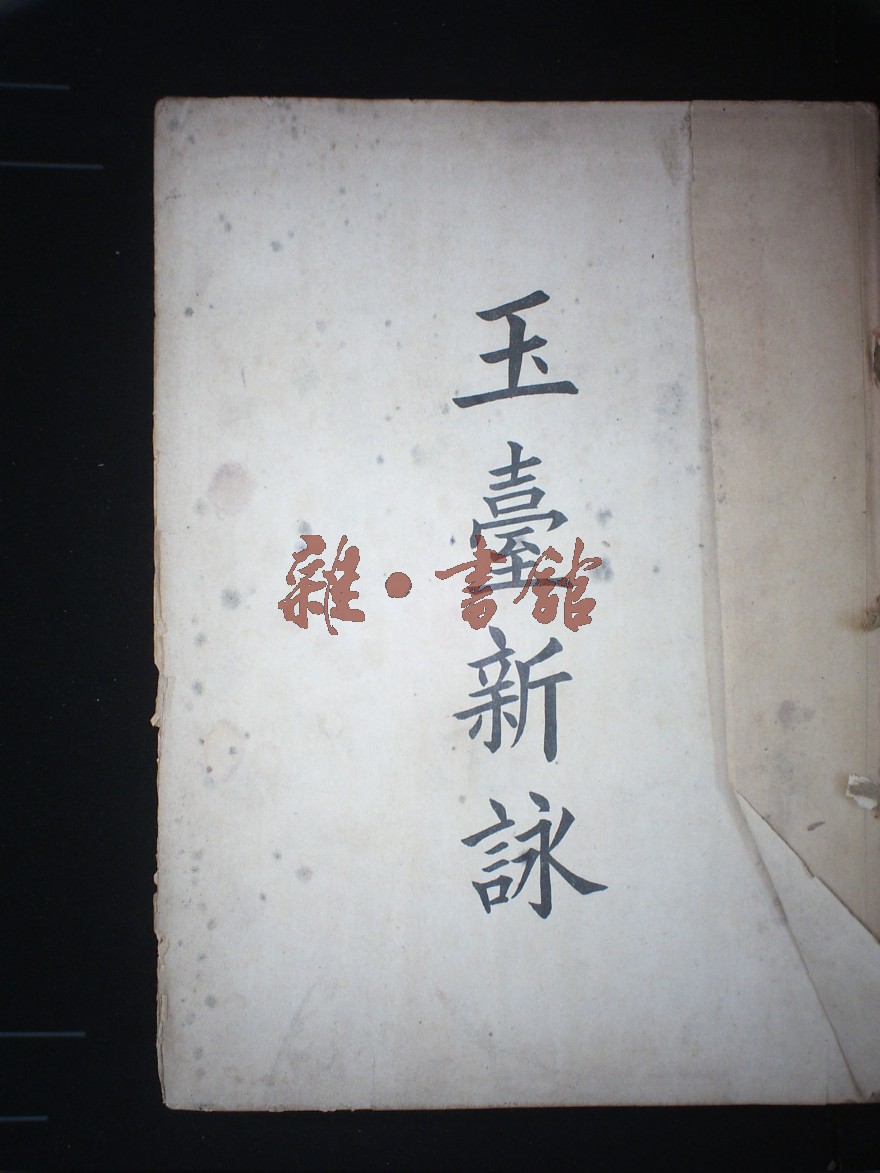 玉臺新詠
雜·書館